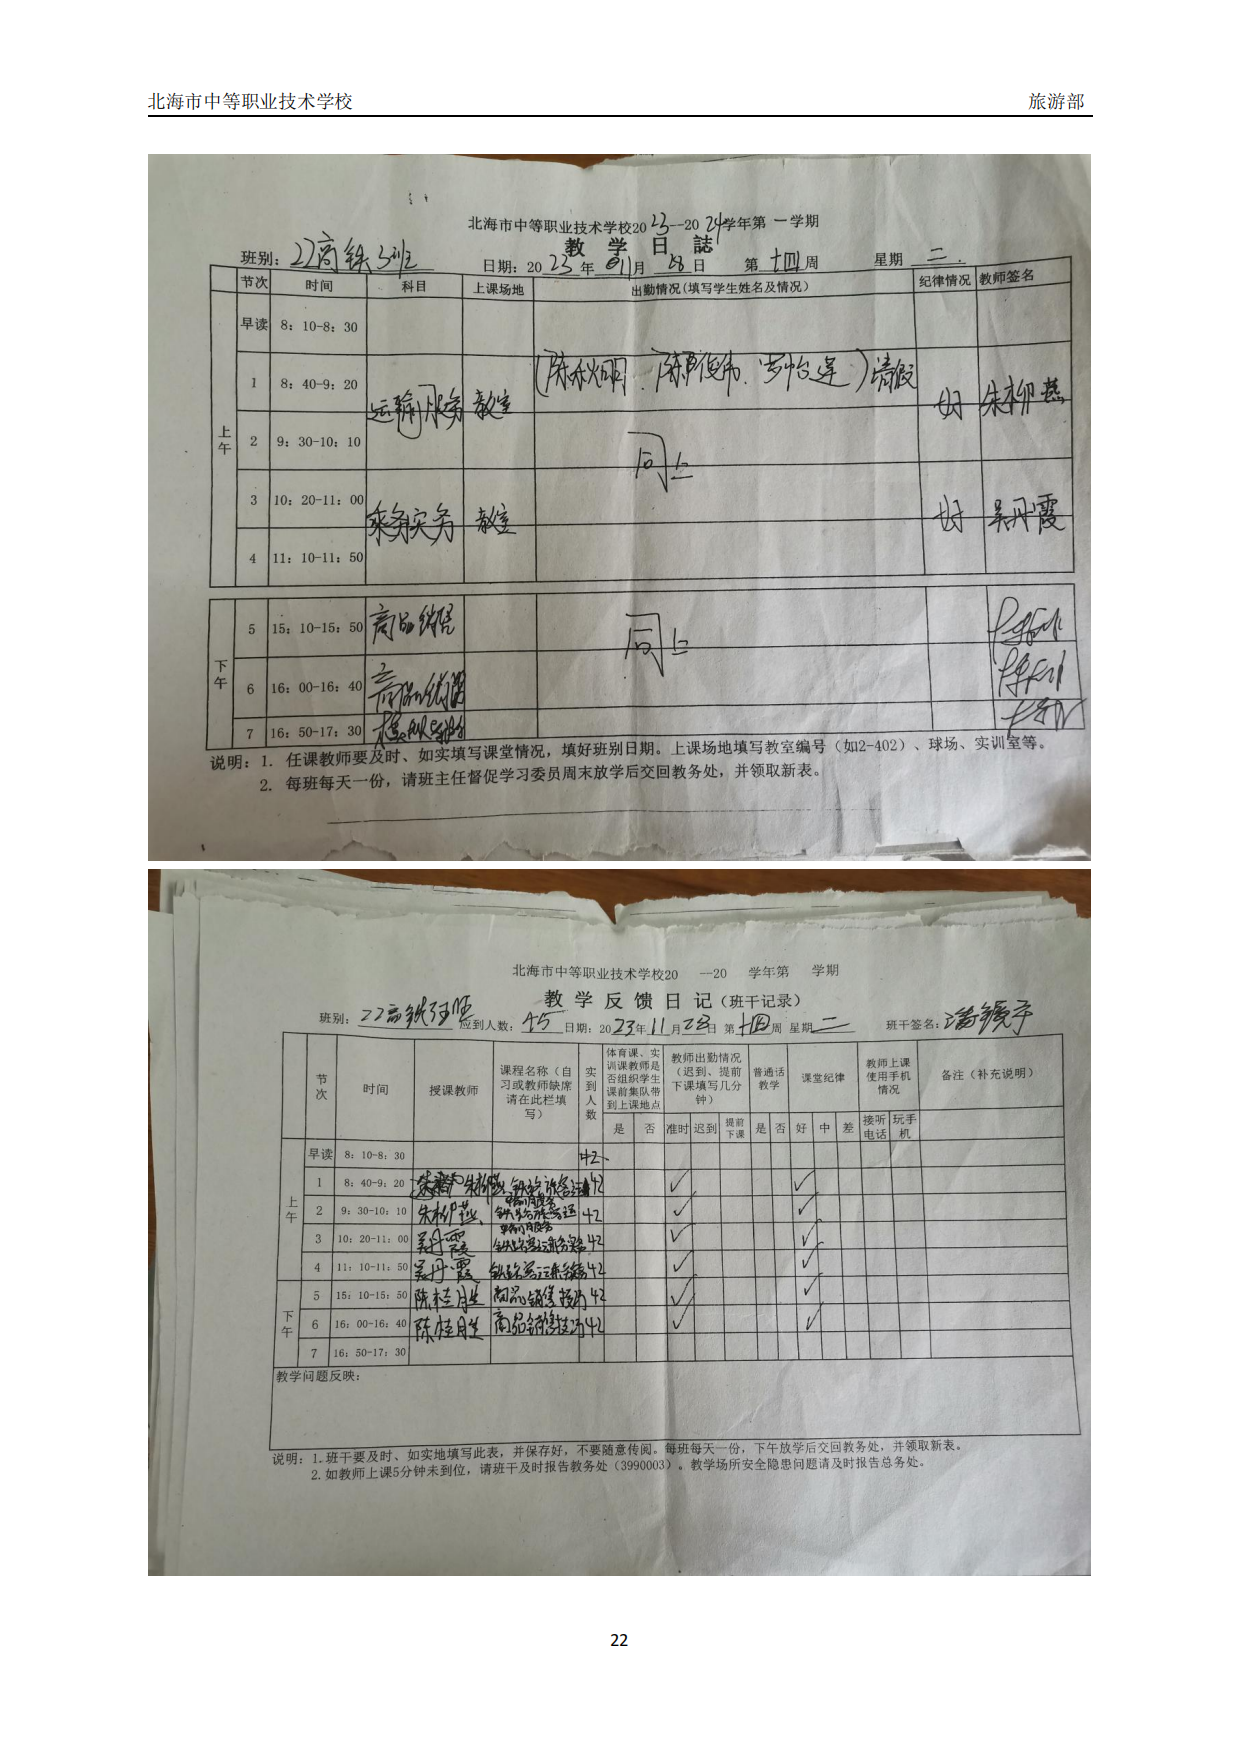 北海市中等职业技术学校 旅游部
北海市中等职业技术学校2023--2024学年第一学期
教 学 日 誌
班别：22高铁3班 日期：2023年11月28日 第十四周 星期二.
节次 时间 科目 上课场地 出勤情况(填写学生姓名及情况) 纪律情况 教师签名
上午
早读 8：10-8：30
1 8：40-9：20 运输服务 教室 请假 好 朱柳燕
2 9：30-10：10 同上
3 10：20-11：00 乘务实务 教室 好 吴丹霞
4 11：10-11：50
下午
5 15：10-15：50 商品销售 同上
6 16：00-16：40 商品销售
7 16：50-17：30 模拟导游
说明：1. 任课教师要及时、如实填写课堂情况，填好班别日期。上课场地填写教室编号（如2-402）、球场、实训室等。
2. 每班每天一份，请班主任督促学习委员周末放学后交回教务处，并领取新表。
北海市中等职业技术学校20 --20 学年第 学期
教 学 反 馈 日 记（班干记录）
班别：22高铁 应到人数：45 日期：2023年11月28日 第十四周 星期二 班干签名：
节次 时间 授课教师 课程名称（自习或教师缺席请在此栏填写） 实到人数 体育课、实训课教师是否组织学生课前集队带到上课地点 教师出勤情况（迟到、提前下课填写几分钟） 普通话教学 课堂纪律 教师上课使用手机情况 备注（补充说明）
是 否 准时 迟到 提前下课 是 否 好 中 差 接听电话 玩手机
上午
早读 8：10-8：30 42
1 8：40-9：20 朱柳燕 42 ✓ ✓
2 9：30-10：10 朱柳燕 42 ✓ ✓
3 10：20-11：00 吴丹霞 42 ✓ ✓
4 11：10-11：50 吴丹霞 42 ✓ ✓
下午
5 15：10-15：50 陈桂胜 商品销售技巧 42 ✓ ✓
6 16：00-16：40 陈桂胜 商品销售技巧 42 ✓ ✓
7 16：50-17：30
教学问题反映：
说明：1.班干要及时、如实地填写此表，并保存好，不要随意传阅。每班每天一份，下午放学后交回教务处，并领取新表。
2.如教师上课5分钟未到位，请班干及时报告教务处（3990003）。教学场所安全隐患问题请及时报告总务处。
22